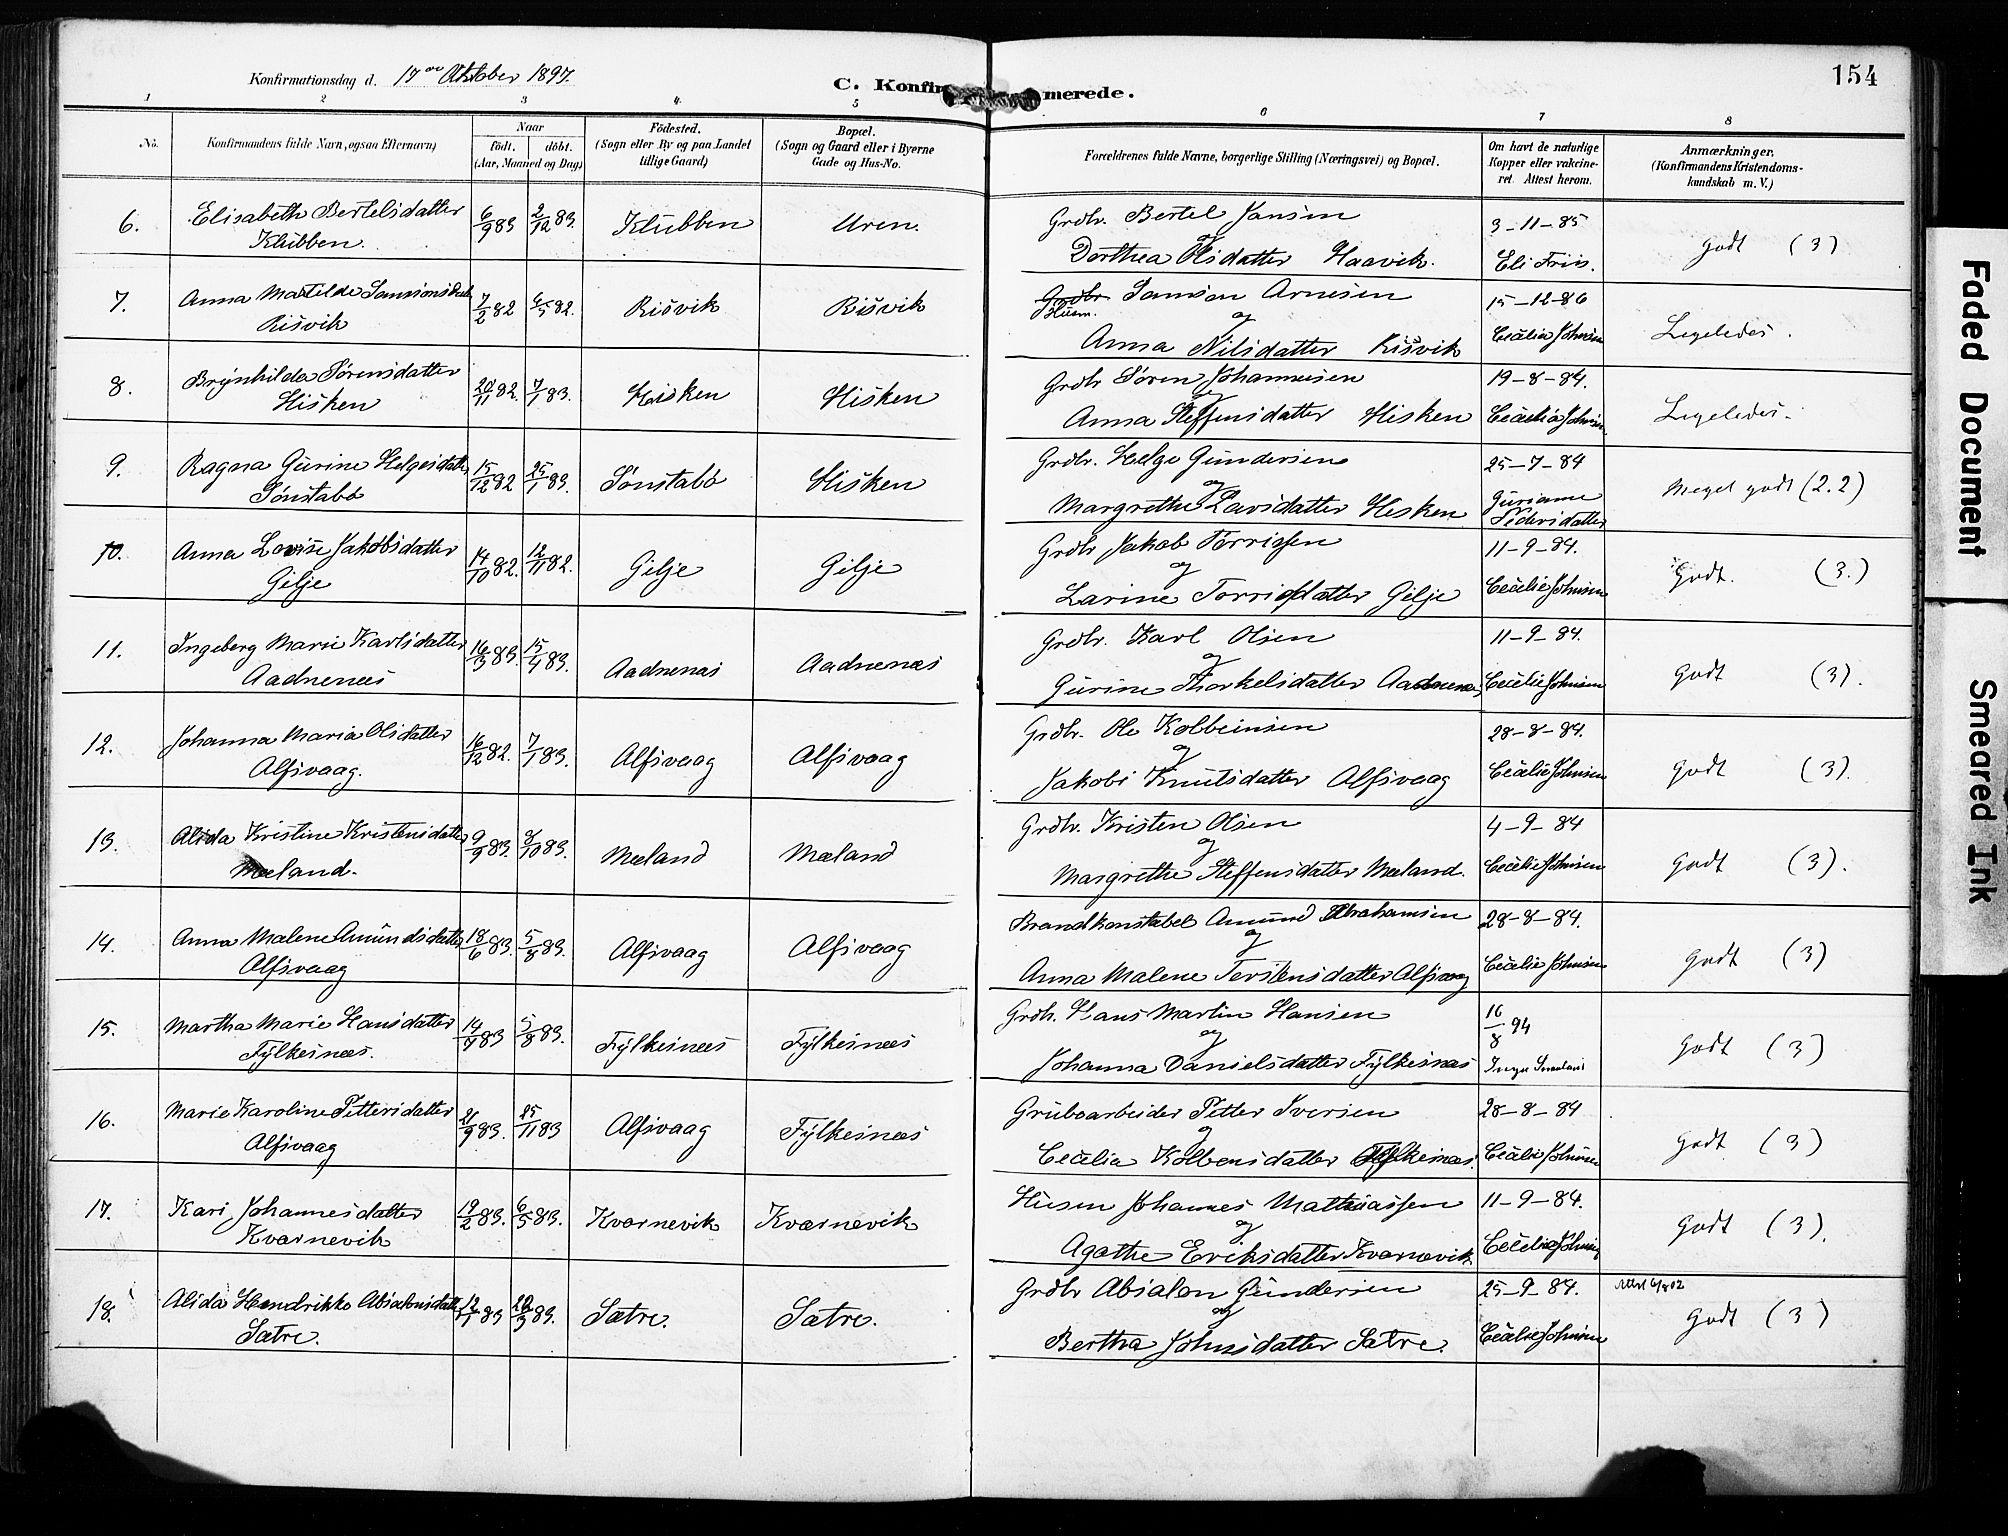 154
Konfirmationsdag d. 17de Oktober 1897.
C. Konfirmerede.
1 2 3 4. 5 6 7 8
No.
Konfirmandens fulde Navn, ogsaa Efternavn)
Naar
födt. döbt.
(Aar, Maaned og Dag)
Födested.
(Sogn eller By og paa Landet
tillige Gaard)
Bopæl.
(Sogn og Gaard eller i Byerne
Gade og Hus-No.
Forældrenes fulde Navne, borgerlige Stilling (Næringsvei) og Bopæl.
Om havt de naturlige
Kopper eller vakcine-
ret. Attest herom.
Anmærkninger,
(Konfirmandens Kristendoms-
kundskab m. V.)
6. Elisabeth Bertelsdatter 6/9 83 2/12 83. Klubben Uren. Grdbr. Bertel Jansen 3-11-85 godt (3)
Klubben. og
Dorthea Olsdatter Haavik. Eli Friis.
7. Anna Matilde Samsonsdatr 7/2 82 6/5 82. Risvik Risvik Grdbr Samson Arnesen 15-12-86 Ligeledes.
Risvik Husm. og
Anna Nilsdatter Risvik Cecilia Johnsen
8. Brynhilda Sörensdatter 20/11 82. 7/1 83. Hisken Hisken Grdbr Sören Johannesen 19-8-84. Ligeledes.
Hisken og
Anna Steffensdatter Hisken Cecelia Johnsen
9. Ragna Gurine Helgesdatter 15/12 82 25/1 83. Sönstabö Hisken Grdbr. Helge Gundersen 25-7-84 Meget godt (2.2)
Sönstabö og
Margrethe Larsdatter Hisken Gurianne
Pedersdatter
10. Anna Lovise Jakobsdatter 14/10 82. 12/11 82. Gilje Gilje Grdbr Jakob Torrisen 11-9-84. Godt. (3.)
Gilje og
Larine Torrisdatter Gilje Cecelie Johnsen
11. Ingeberg Marie Karlsdatter 16/3 83. 15/4 83. Aadnenæs Aadnenæs Grdbr. Karl Olsen 11-9-84. Godt (3).
Aadnenæs og
Gurine Thorkelsdatter Aadnenæs Cecelie Johnsen
12. Johanna Maria Olsdatter 16/12 82. 7/1 83. Alfsvaag Alfsvaag Grdbr. Ole Kolbeinsen 28-8-84. Godt (3).
Alfsvaag. og
Jakobi Knutsdatter Alfsvaag Cecelie Johnsen
13. Alida Kristine Kristensdatter 9/9 83. 8/10 83. Mæland Mæland Grdbr. Kristen Olsen 4-9-84 Godt (3).
Mæland. og
Margrethe Steffensdatter Mæland. Cecelie Johnsen
14. Anna Malene Amundsdatter 18/6 83. 5/8 83. Alfsvaag Alfsvaag Brandkonstabel Amund Abrahamsen 28-8-84. Godt (3)
Alfsvaag og
Anna Malene Torstensdatter Alfsvaag Cecelie Johnsen
15. Martha Marie Hansdatter 14/7 83 5/8 83. Fylkesnæs Fylkesnæs Grdb. Hans Martin Hansen 16/8 94 Godt (3)
Fylkesnæs. og
Johanna Danielsdatter Fylkesnæs
16. Marie Karoline Pettersdatter 21/9 83. 25/11 83 Alfsvaag Fylkesnæs Grubearbeider Petter Iversen 28-8-84 Godt (3)
Alfsvaag og
Cecelia Kolbensdatter Fylkesnæs. Cecelie Johnsen
17. Kari Johannesdatter 19/2 83. 6/5 83. Kvarnevik Kvarnevik Husm Johannes Mathiassen 11-9-84. Godt (3).
Kvarnevik og
Agathe Eriksdatter Kvarnevik Cecelie Johnsen
18. Alida Hendrikke Absalonsdatter 12/1 83 28/3 83. Sætre. Sætre. Grdbr Absalon Gundersen 25-9-84. Godt (3)
Sætre. og
Bertha Johnsdatter Sætre. Cecelie Johnsen
Faded Document
Smeared Ink